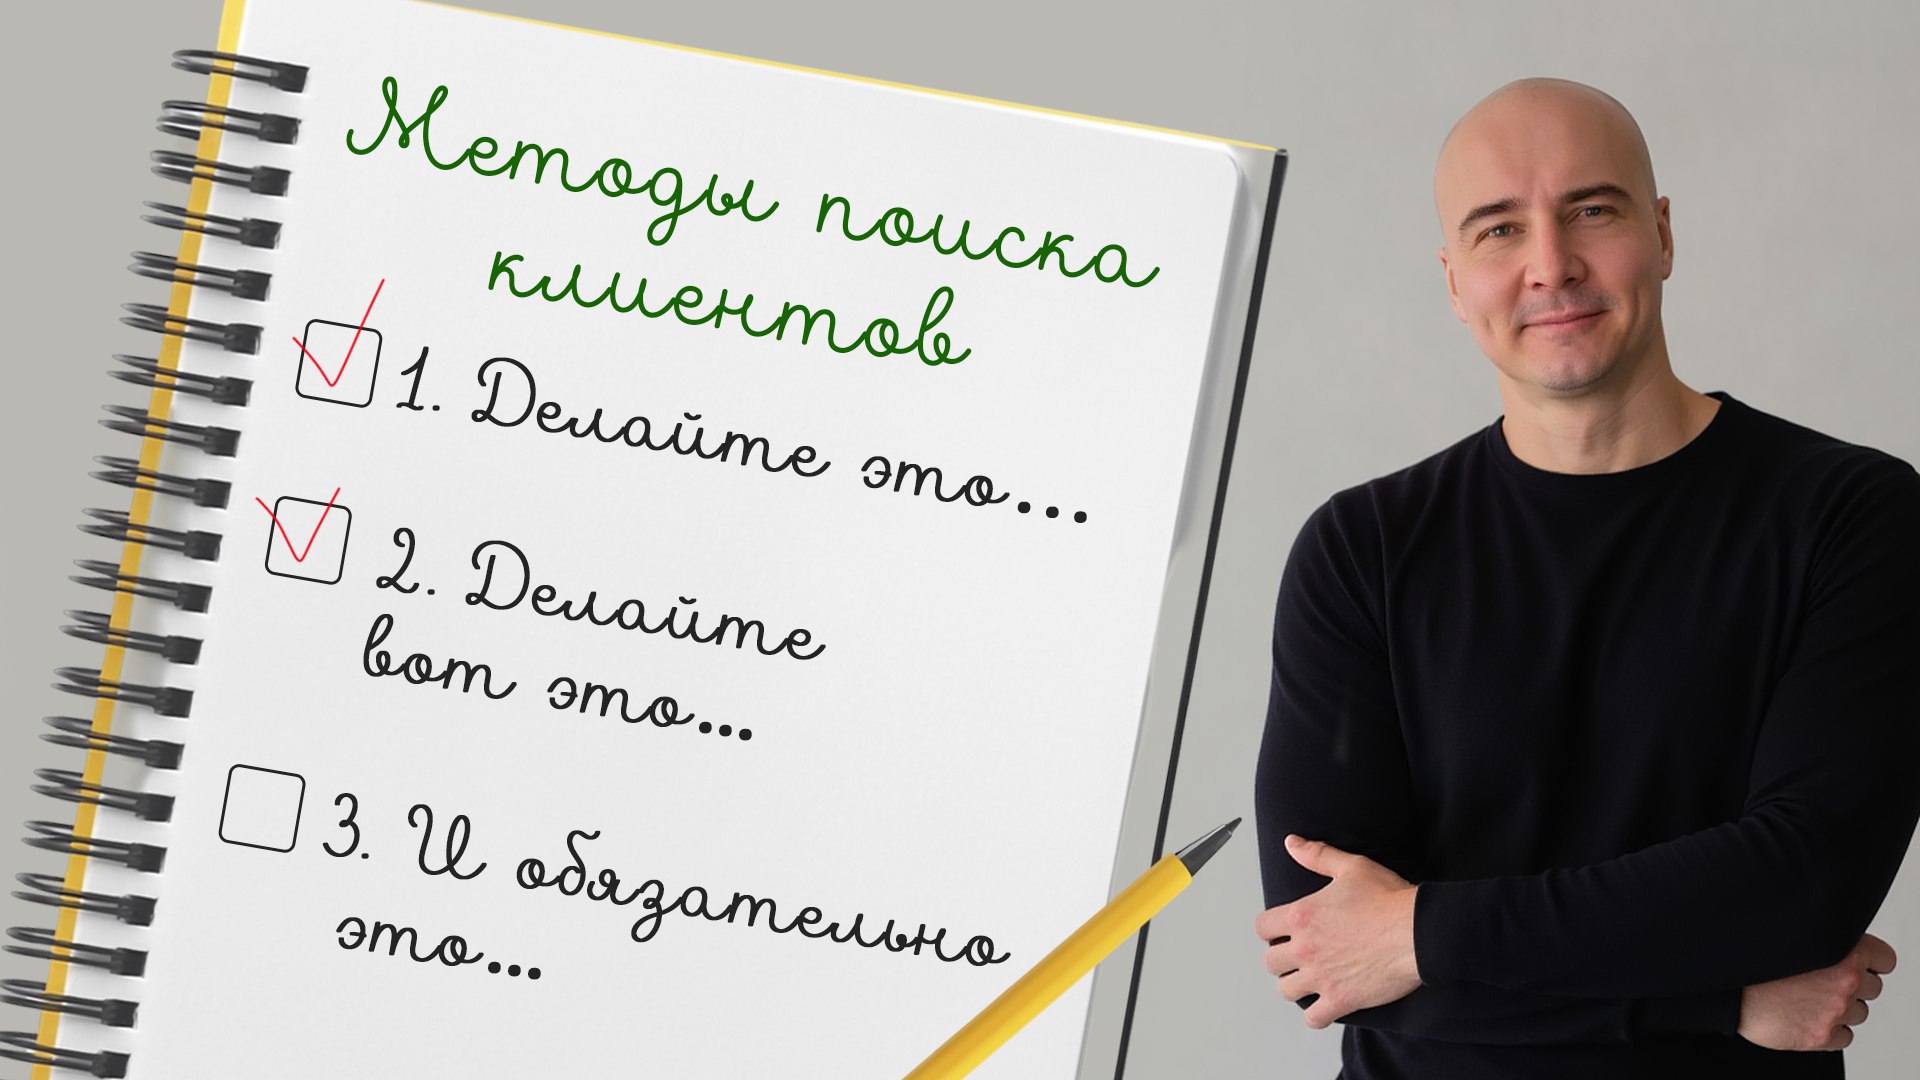 Методы поиска
клиентов
1. Делайте это...
2. Делайте
вот это...
3. И обязательно
это...